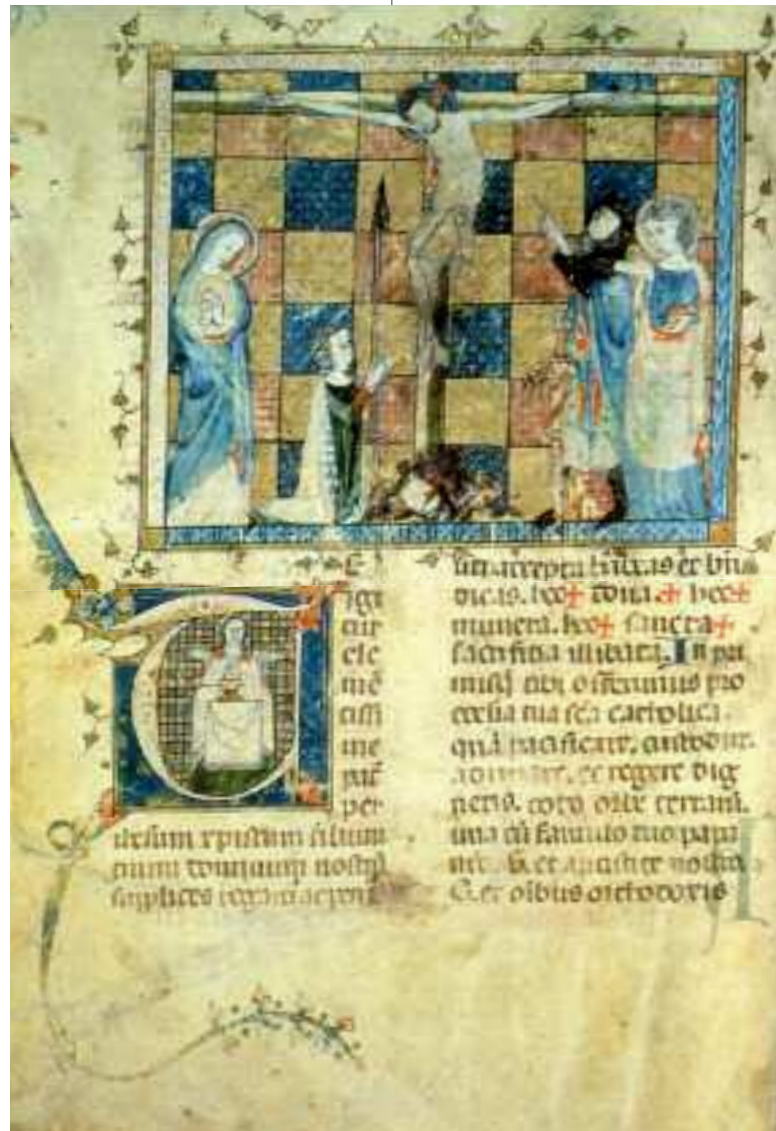 T E
igi
tur
cle
mē
tissi
me
pat̄
per
ihesum xpistum filium
tuum dominum nostrū
supplices rogam
uti accepta habeas et bñ
dicas. hec + dona. + hec +
munera. hec + sancta +
sacrificia illibata. In pri
misq tibi offerimus pro
ecclesia tua sca catholica.
quā pacificare. custodire.
adunare. et regere dig
neris. toto orbe terrarū.
una cū famulo tuo papa
nro. et antistite nostro
et oībus ortodoxis